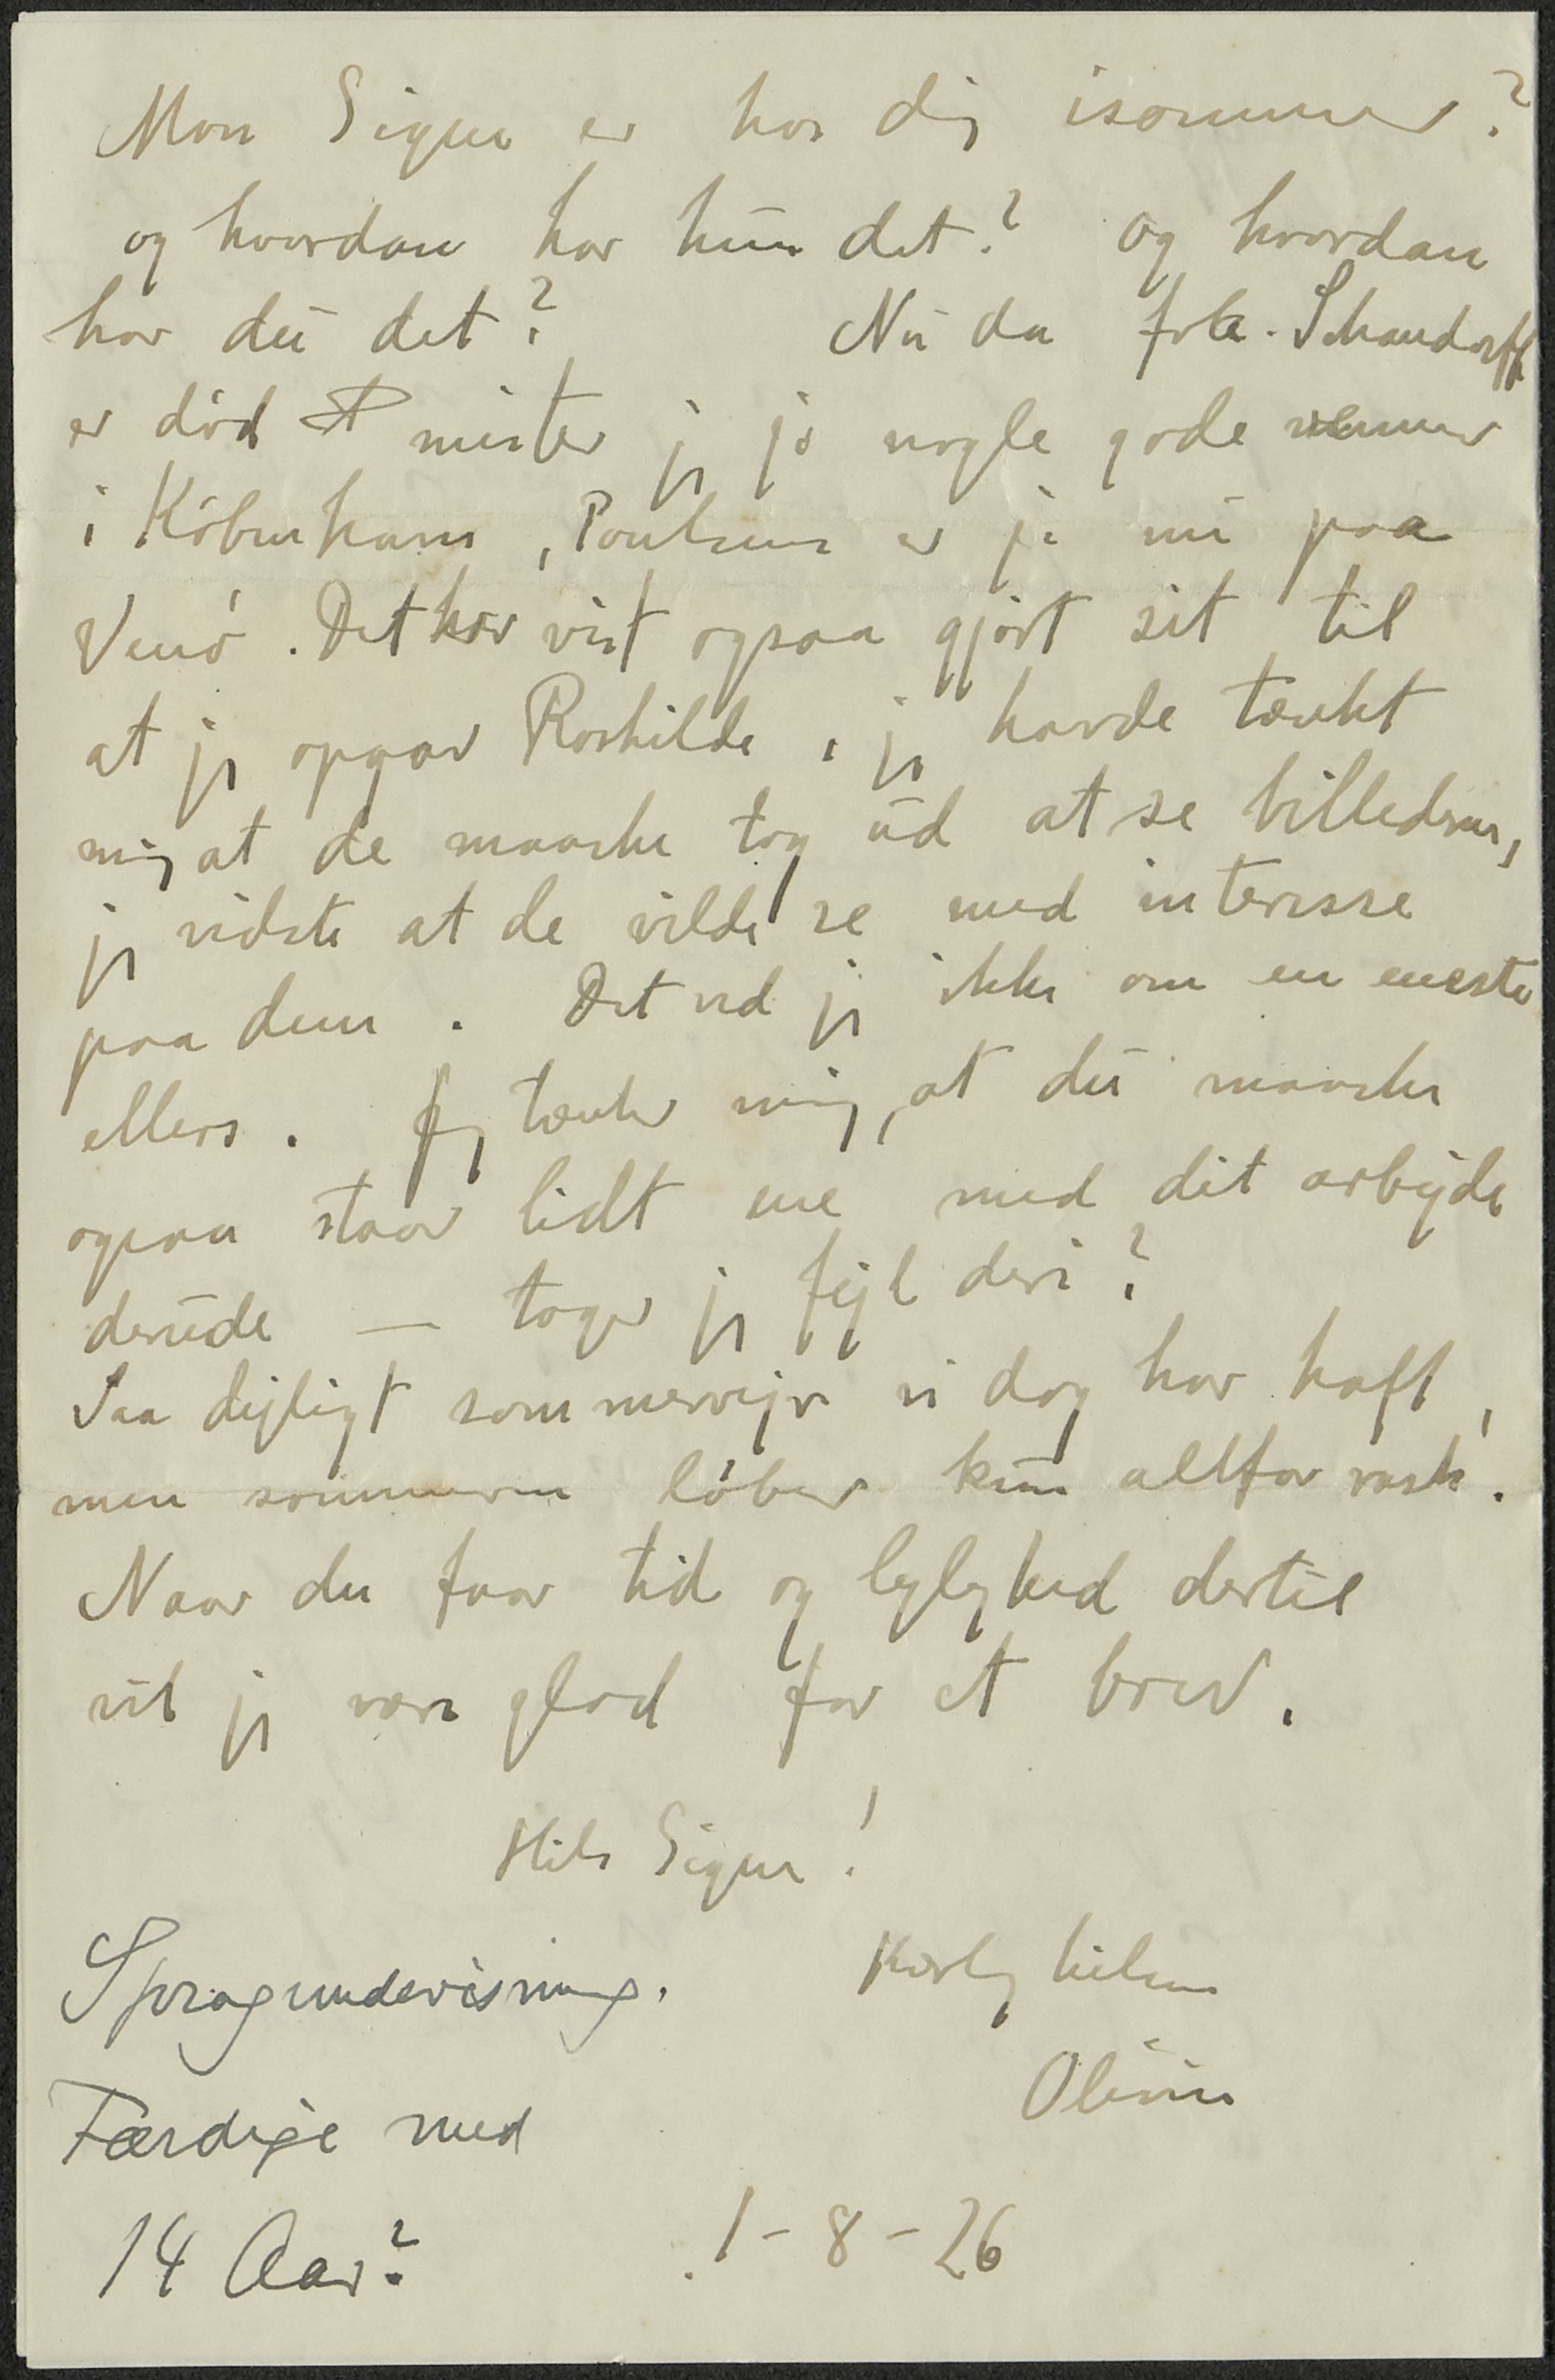 Mon Sigun er hos dig isommer?
og hvordan har hun det? og hvordan
har du det? Nu da frk. Schandorff
er død mister jeg jo nogle gode venner
i København, Poulsens er jo nu paa
Venø. Det har vist ogsaa gjort sit til
at jeg opgav Roskilde, jeg havde tænkt
mig at de maaske tog ud at se billederne,
jeg vidste at de vilde se med interesse
paa dem. Det ved jeg ikke om en eneste
ellers. Jeg tænker mig, at du maaske
ogsaa staar lidt ene med dit arbejde
derude — tager jeg fejl deri?
Saa dejligt sommervejr vi dog har haft,
men sommeren løber kun altfor rask.
Naar du faar tid og lejlighed dertil
vil jeg være glad for et brev.
Hils Sigun!
Kærlig hilsen
Olivia
Sprogundervisning.
Færdige med
14 Aar?
1-8-26